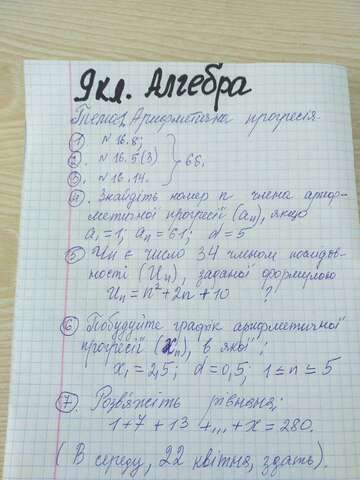 9 кл. Алгебра
Тема: Арифметична прогресія
1. №16.8;
2. №16.5(3) } - 6б.
3. №16.14.
4. Знайдіть номер n члена ариф-
метичної прогресії (aₙ), якщо
a₁=1; aₙ=61; d=5
5. Чи є число 34 членом послідов-
ності (Uₙ), заданої формулою
Uₙ=n²+2n+10 ?
6. Побудуйте графік арифметичної
прогресії (xₙ), в якої;
x₁=2,5; d=0,5; 1≤n≤5
7. Розв'яжіть рівняння;
1+7+13+...+x=280.
(В середу, 22 квітня, здать).